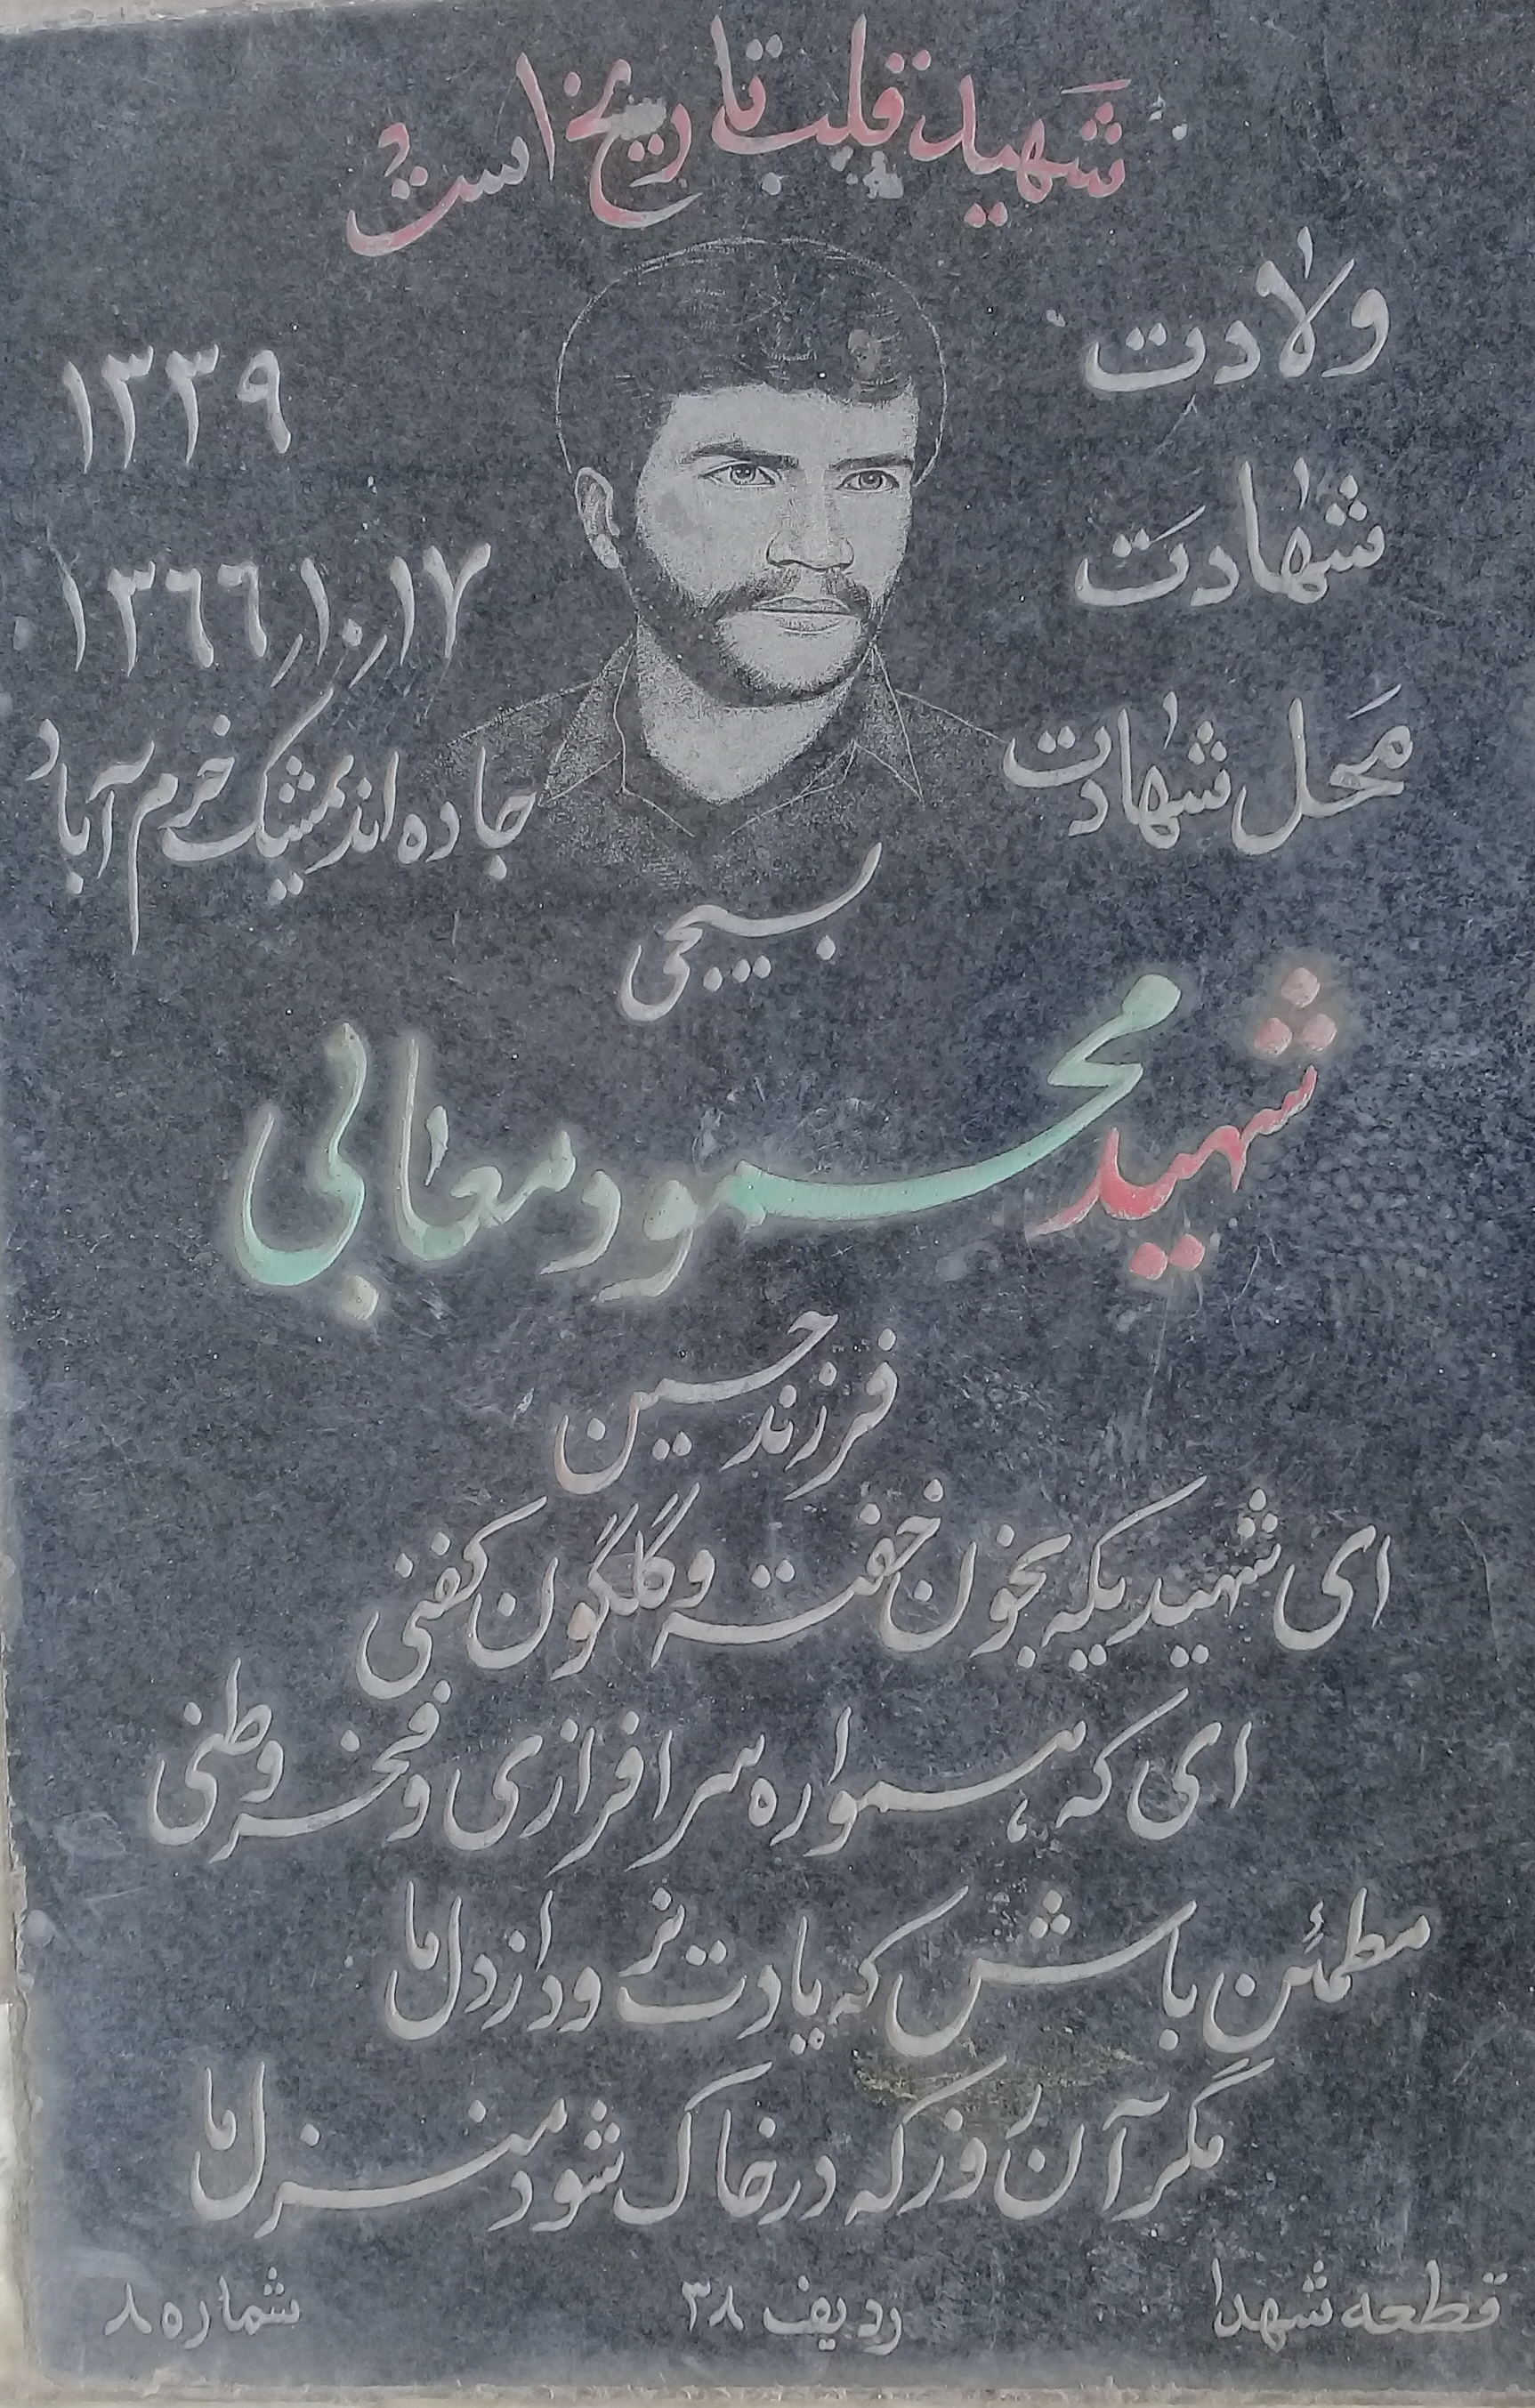 شهید قلب تاریخ است
ولادت ۱۳۳۹
شهادت ۱۳۶۶/۱۰/۱۷
محل شهادت جاده اندیمشک خرم آباد
بسیجی
شهید محمود معابی
فرزند حسین
ای شهیدیکه بخون خفته و گلگون کفنی
ای که همواره سرافرازی و فخر وطنی
مطمئن باش که یادت نرود از دل ما
مگر آن روز که در خاک شود منزل ما
قطعه شهدا ردیف ۳۸ شماره ۸